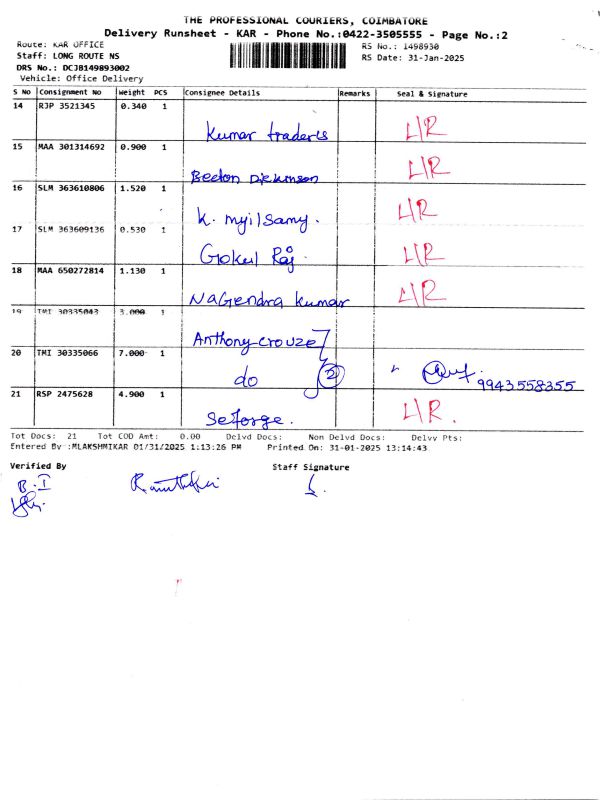 THE PROFESSIONAL COURIERS, COIMBATORE
Delivery Runsheet - KAR - Phone No.:0422-3505555 - Page No.:2
Route: KAR OFFICE RS No.: 1498930
Staff: LONG ROUTE NS RS Date: 31-Jan-2025
DRS No.: DCJB149893002
Vehicle: Office Delivery
S No Consignment No Weight PCS Consignee Details Remarks Seal & Signature
14 RJP 3521345 0.340 1
Kumar traders L/R
15 MAA 301314692 0.900 1
Becton Dickinson L/R
16 SLM 363610806 1.520 1
K. Myilsamy. L/R
17 SLM 363609136 0.530 1
Gokul Raj L/R
18 MAA 650272814 1.130 1
Nagendra Kumar L/R
19 TMI 30335043 3.000 1
Anthony crouze
20 TMI 30335066 7.000 1
do 2 " 9943558355
21 RSP 2475628 4.900 1
Seforge. L/R.
Tot Docs: 21 Tot COD Amt: 0.00 Delvd Docs: Non Delvd Docs: Delvv Pts:
Entered By :MLAKSHMIKAR 01/31/2025 1:13:26 PM Printed On: 31-01-2025 13:14:43
Verified By Staff Signature
B. I